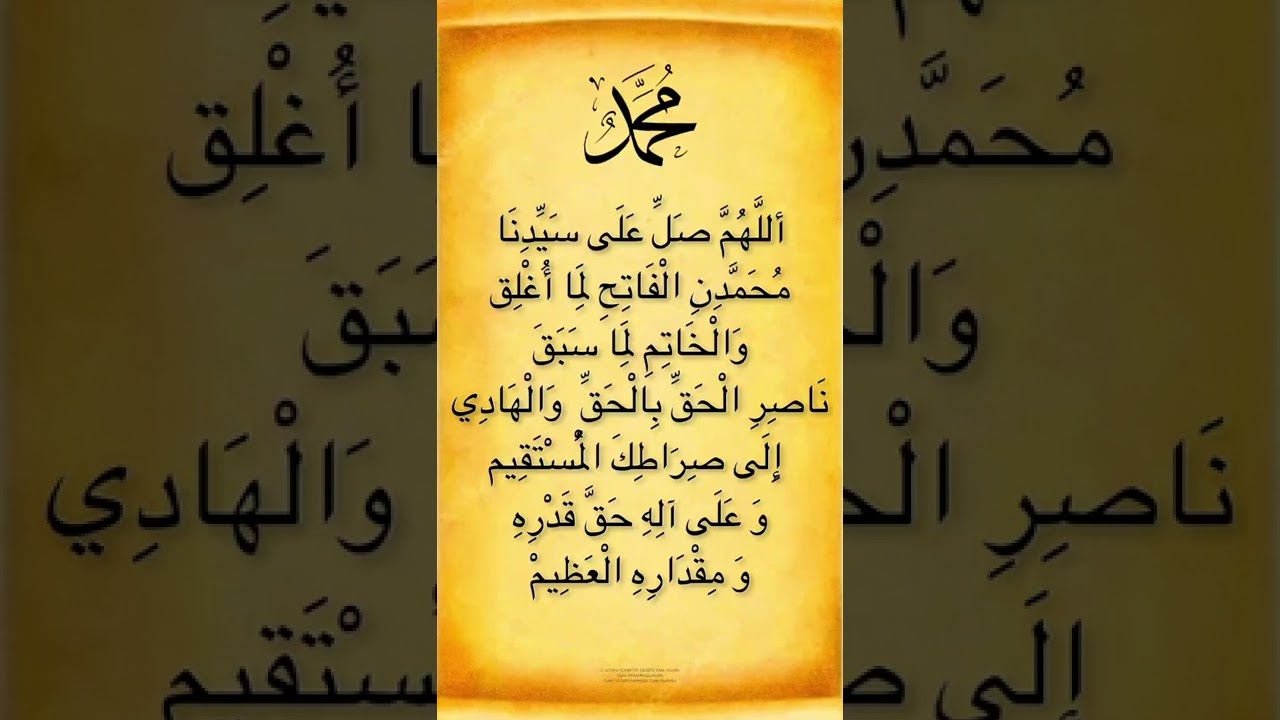 مُحَمَّدٌ
أللَّهُمَّ صَلِّ عَلَى سَيِّدِنَا
مُحَمَّدِنِ الْفَاتِحِ لِمَا أُغْلِق
وَالْخَاتِمِ لِمَا سَبَقَ
نَاصِرِ الْحَقِّ بِالْحَقِّ وَالْهَادِي
إِلَى صِرَاطِكَ الْمُسْتَقِيم
وَ عَلَى آلِهِ حَقَّ قَدْرِهِ
وَ مِقْدَارِهِ الْعَظِيمْ